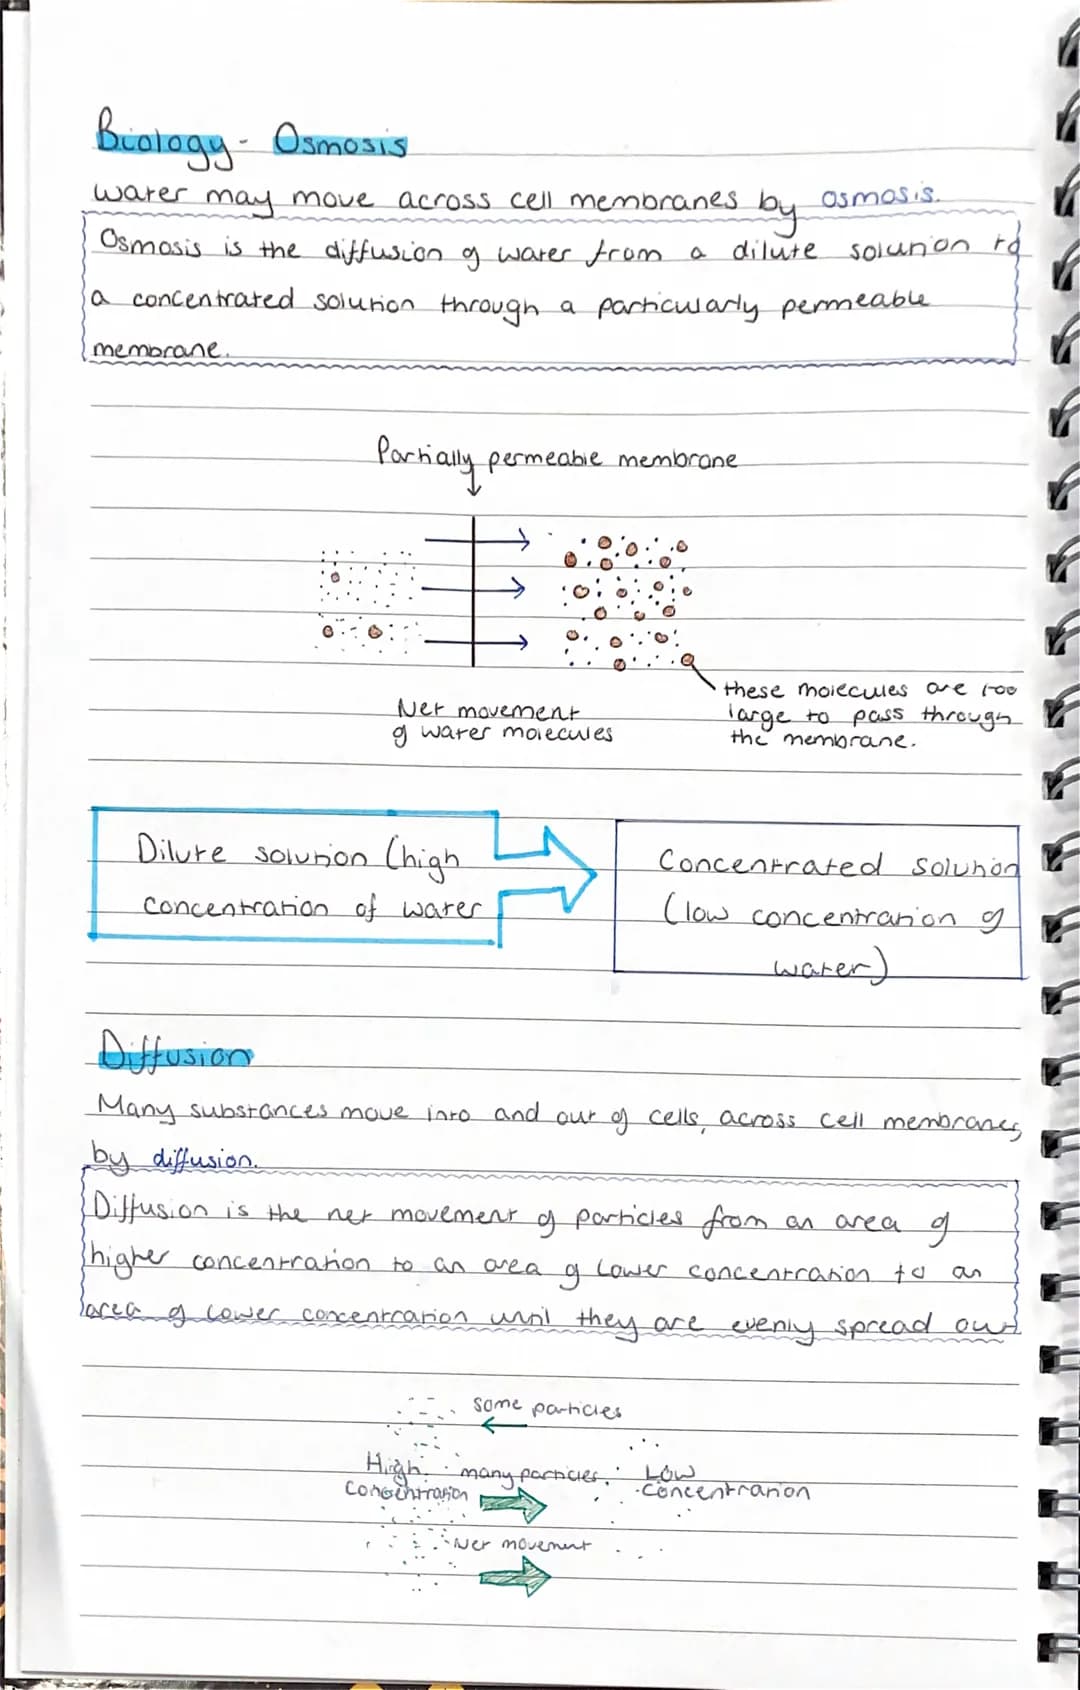 Biology - Osmosis
water may move across cell membranes by osmosis.
Osmosis is the diffusion of water from a dilute solution to
a concentrated solution through a particularly permeable
membrane.
Partially permeable membrane
these molecules are too
large to pass through
the membrane.
Net movement
of water molecules
Dilute solution (high
concentration of water
Concentrated solution
(low concentration of
water)
Diffusion
Many substances move into and out of cells, across cell membranes
by diffusion.
Diffusion is the net movement of particles from an area of
higher concentration to an area of lower concentration to an
area of lower concentration until they are evenly spread out
some particles
High concentration
many particles
Low concentration
Net movement